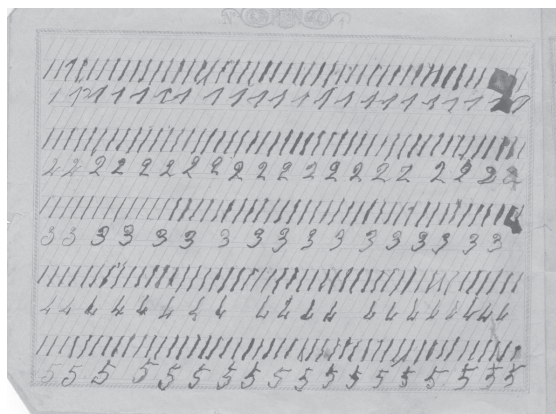 1 1 1 1 1 1 1 1 1 1 1 1 1 1 1 1 1 1 1 1 1 1
2 2 2 2 2 2 2 2 2 2 2 2 2 2 2 2 2 2 2 2
3 3 3 3 3 3 3 3 3 3 3 3 3 3 3 3 3
4 4 4 4 4 4 4 4 4 4 4 4 4 4 4 4 4 4 4 4
5 5 5 5 5 5 5 5 5 5 5 5 5 5 5 5 5 5